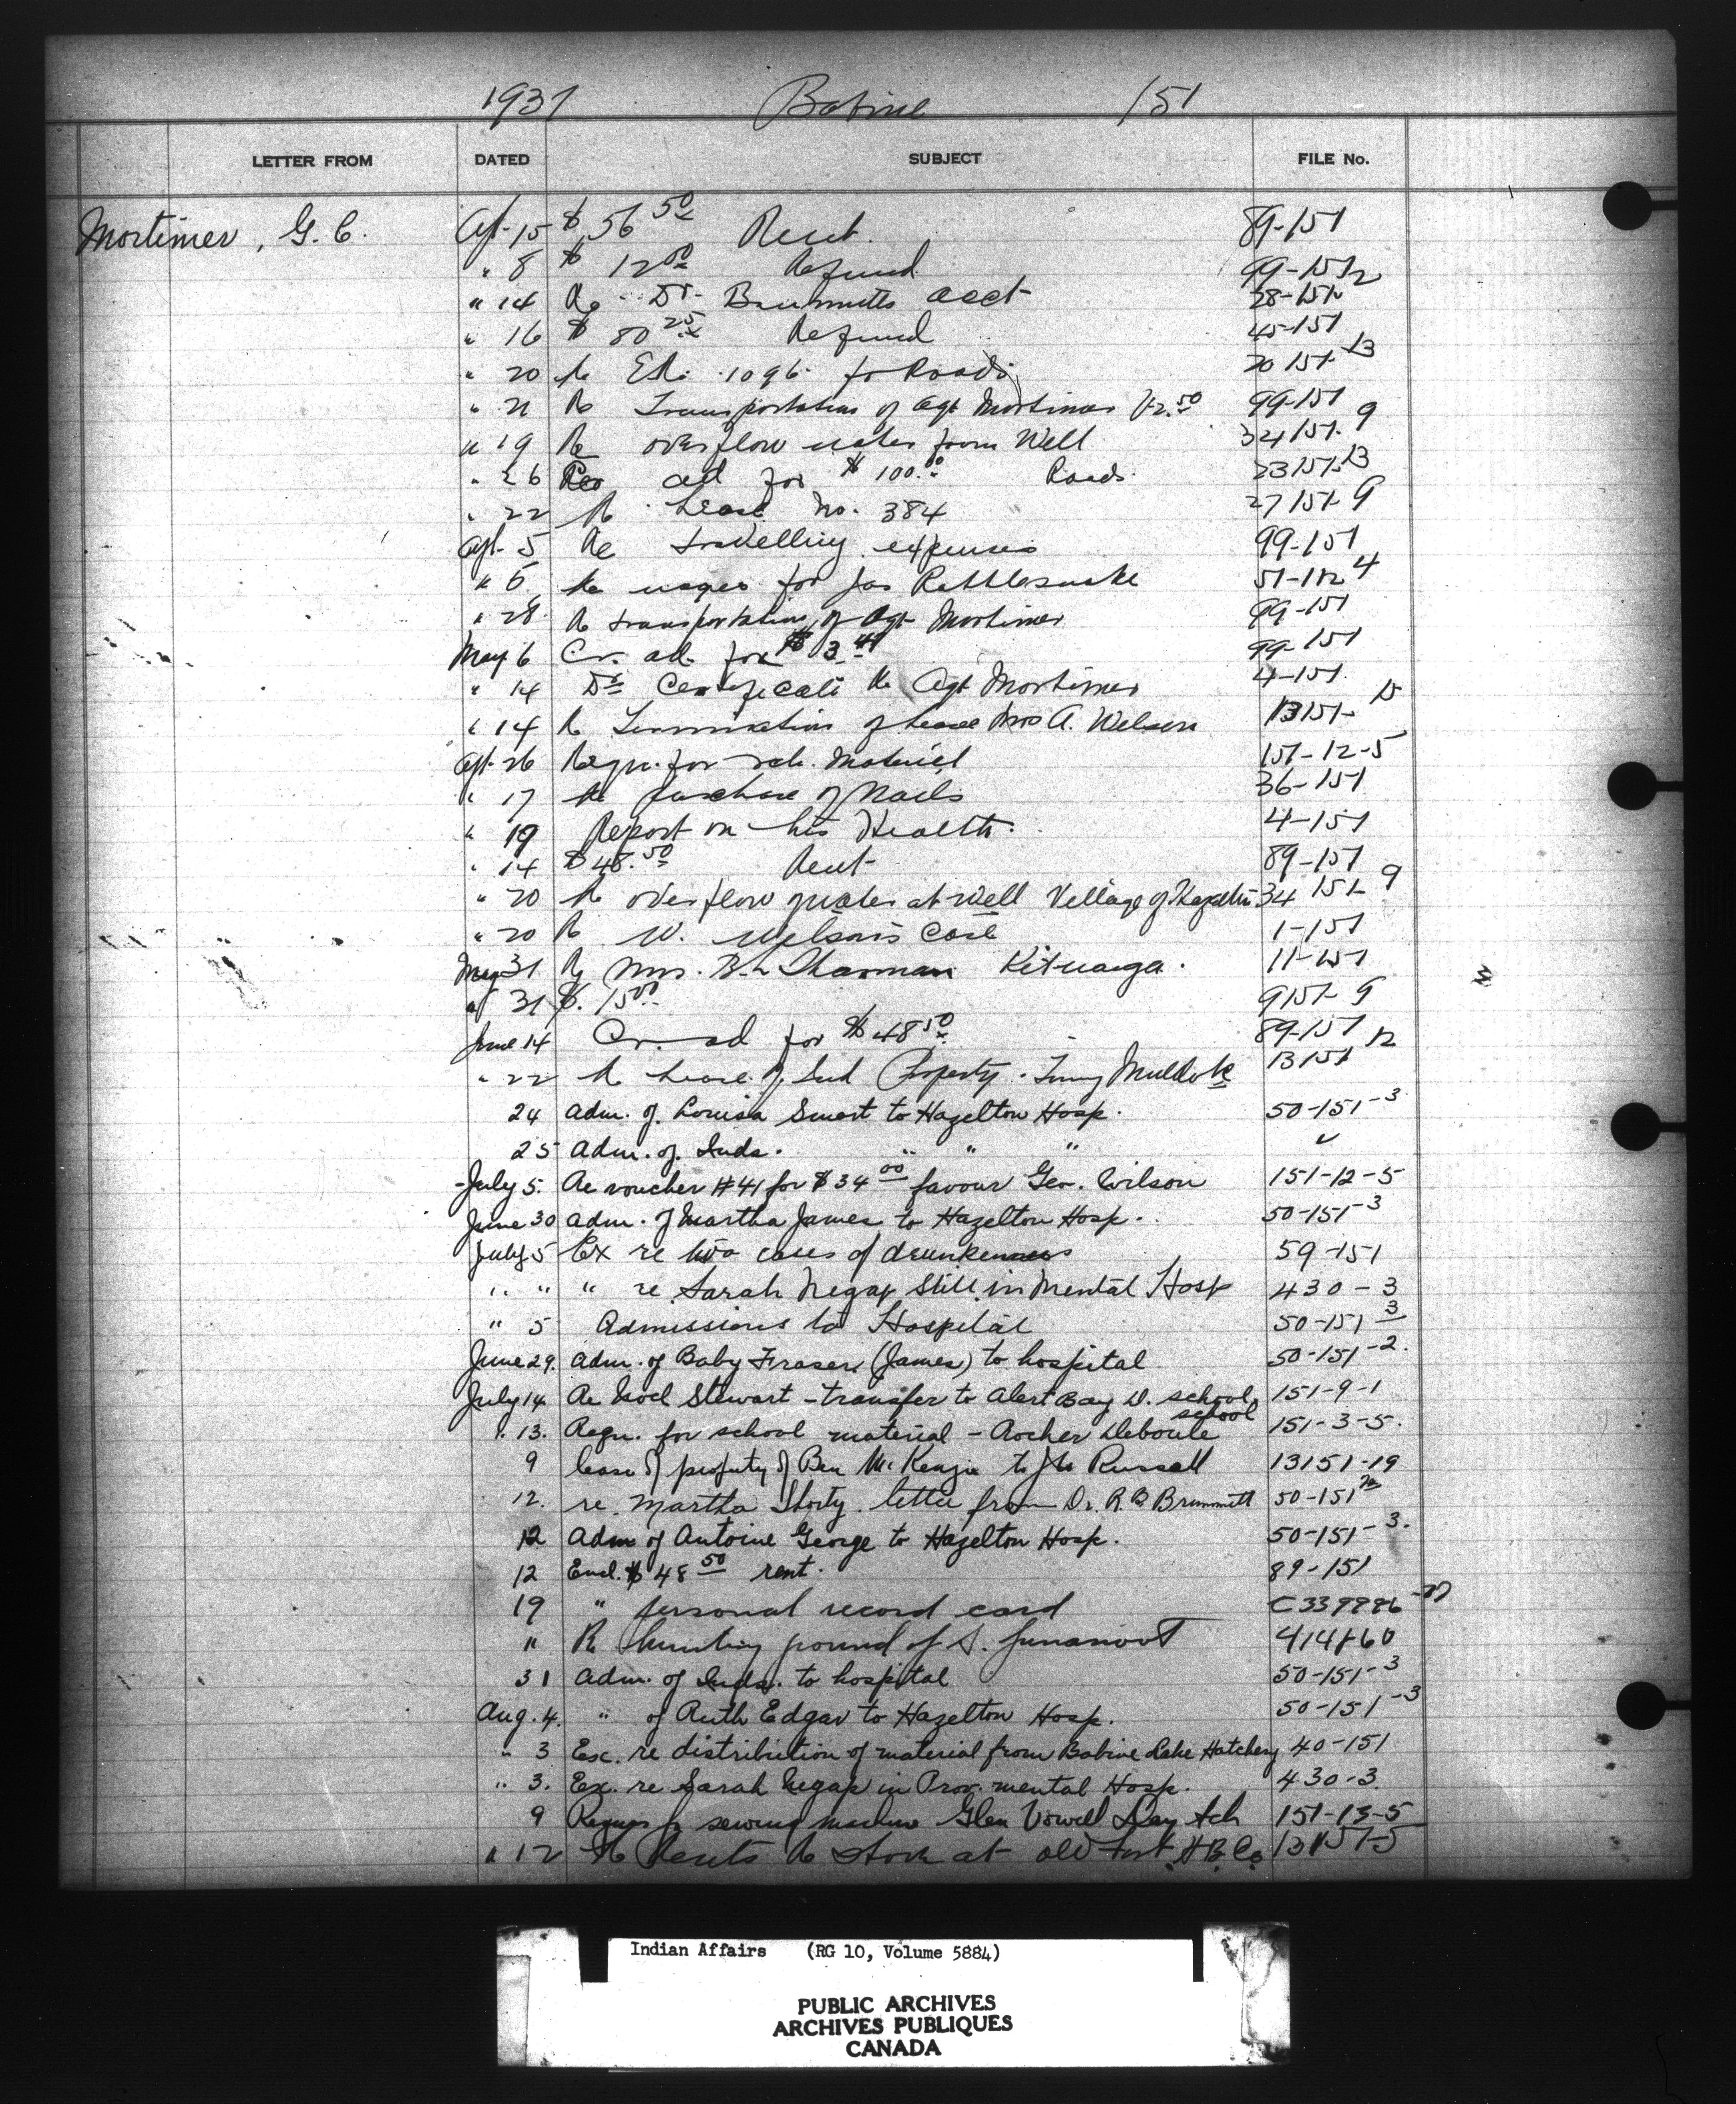 1937 Babine 151
LETTER FROM DATED SUBJECT FILE No.
Mortimer, G. C. Apl-15 $ 56 50 Rent. 89-151
" 8 $ 12 00 Refund 99-151
" 14 Re Dr. Brummitts acct 28-151
" 16 $ 80 25 Refund 45-151
" 20 Re 1096 for Roads 20 151-13
" 21 Re Transportation of Agt Mortimer 99-151
" 19 Re overflow water from Well 34151-9
" 26 Req ad for $ 100.00 Roads. 23151-13
" 22 Re Lease No. 384 27151-9
Apl-5 Re travelling expenses 99-151
" 6 Re wages for Jas Rattlesnake
" 28 Re transportation of Agt Mortimer 99-151
May 6 Cr. ad. for $ 3 99-151
" 14 Dr Certificate Re Agt Mortimer 4-151
" 14 Re Termination of Lease Mrs A. Wilson 13151-
Apl-26 Requ. for sch. Material 151-12-5
" 17 Re purchase of Nails 36-151
" 19 Report on his Health. 4-151
" 14 $ 48.50 Rent 89-151
" 20 Re overflow water at Well Village of Hazelton 34151-9
" 20 Re W. Wilson's Case 1-151
May 31 Re Mrs. Sharman Kitwanga. 11-151
" 31 $. 15 00 9151-9
June 14 Cr. ad for $ 48 50 89-151
" 22 Re Lease of Ind Property. 13151 12
24 Adm. of Louisa Smart to Hazelton Hosp. 50-151-3
25 Adm. of Inds. " " "
July 5. Re voucher #41 for $ 34 00 favour Geo. Wilson 151-12-5
June 30 Adm. of Martha James to Hazelton Hosp. 50-151-3
July 5 Ex re two cases of drunkenness 59-151
" " " re Sarah Negap still in Mental Hosp 430-3
" 5 Admissions to Hospital 50-151-3
June 29. Adm. of Baby Fraser (James) to hospital 50-151-2.
July 14 Re Noel Stewart - transfer to Alert Bay D. school 151-9-1
" 13. Requ. for school material - Rocher Deboule school 151-3-5.
9 lease of property of Ben McKenzie to Russell 13151-19
12. re Martha Shorty letter from Dr. R. B. Brummitt 50-151
12 Adm of Antoine George to Hazelton Hosp. 50-151-3.
12 Encl. $ 48 50 rent. 89-151
19 " personal record card
" Re Hunting ground of S. 414860
31 Adm. of Inds. to hospital 50-151-3
Aug. 4. " of Ruth Edgar to Hazelton Hosp. 50-151-3
" 3 Exc. re distribution of material from Babine Lake Hatchery 40-151
" 3. Ex. re Sarah Negap in Prov. mental Hosp. 430-3
9 Requis for sewing machine Glen Vowell Day Sch 151-13-5
" 12 Re Rents Re store at old Fort H B Co 13151-5
Indian Affairs (RG 10, Volume 5884)
PUBLIC ARCHIVES
ARCHIVES PUBLIQUES
CANADA